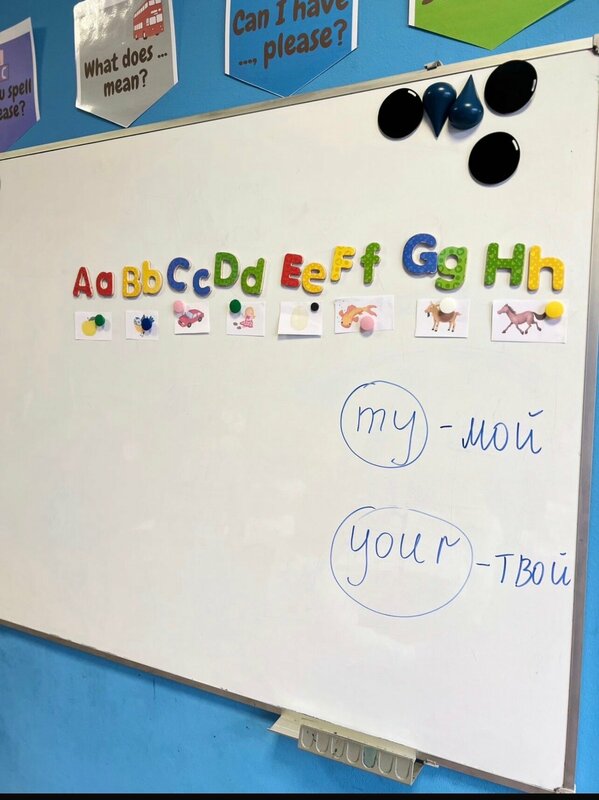 What does ...
mean?
Can I have
..., please?
spell
ease?
Aa Bb Cc Dd Ee Ff Gg Hh
my - мой
your - твой